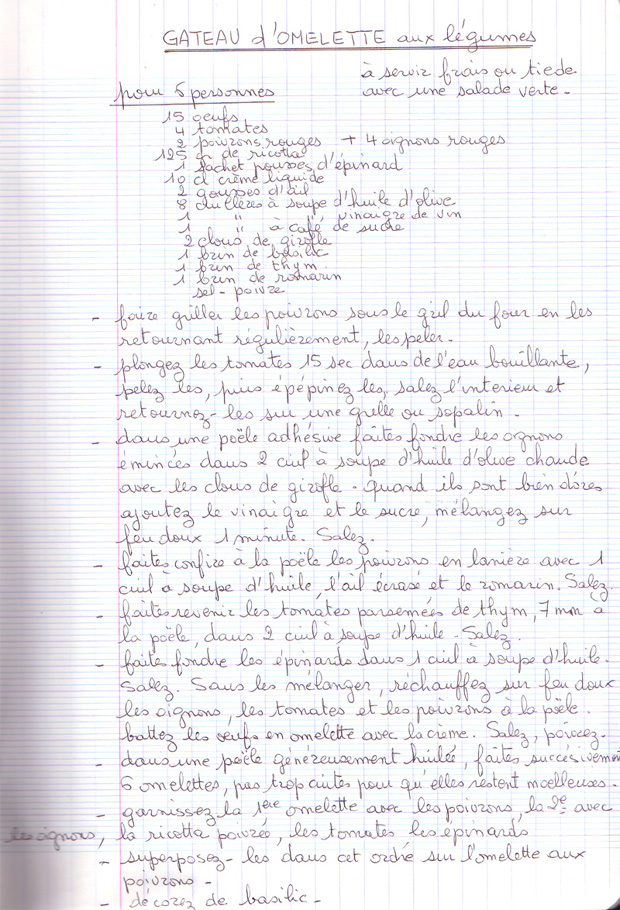 GATEAU d'OMELETTE aux légumes
à servir frais ou tiede
avec une salade verte -
pour 6 personnes
15 oeufs
4 tomates
2 poivrons rouges + 4 oignons rouges
125 gr de ricotta
1 sachet pousses d'épinard
10 cl crème liquide
2 gousses d'ail
8 cuillères à soupe d'huile d'olive
1 " " vinaigre de vin
1 " à café de sucre
2 clous de girofle
1 brin de basilic
1 brin de thym
1 brin de romarin
sel - poivre
- faire griller les poivrons sous le gril du four en les
retournant régulièrement, les peler.
- plongez les tomates 15 sec dans de l'eau bouillante,
pelez les, puis épépinez les, salez l'interieur et
retournez-les sur une grille ou sopalin.
- dans une poële adhésive faites fondre les oignons
émincés dans 2 cuil à soupe d'huile d'olive chaude
avec les clous de girofle - quand ils sont bien dorés
ajoutez le vinaigre et le sucre, mélangez sur
feu doux 1 minute. Salez.
- faites confire à la poële les poivrons en lanière avec 1
cuil à soupe d'huile, l'ail écrasé et le romarin. Salez
- faites revenir les tomates parsemées de thym, 7 mn à
la poële, dans 2 cuil à soupe d'huile - Salez.
- faite fondre les épinards dans 1 cuil à soupe d'huile.
Salez. Sans les mélanger, réchauffez sur feu doux
les oignons, les tomates et les poivrons à la poële.
battez les oeufs en omelette avec la crème. Salez, poivrez.
- dans une poële généreusement huilée, faites succésivement
6 omelettes, pas trop cuites pour qu'elles restent moelleuses.
- garnissez la 1ère omelette avec les poivrons, la 2e avec
les oignons, la ricotta poivrée, les tomates les épinards
- superposez-les dans cet ordre sur l'omelette aux
poivrons -
- décorez de basilic -